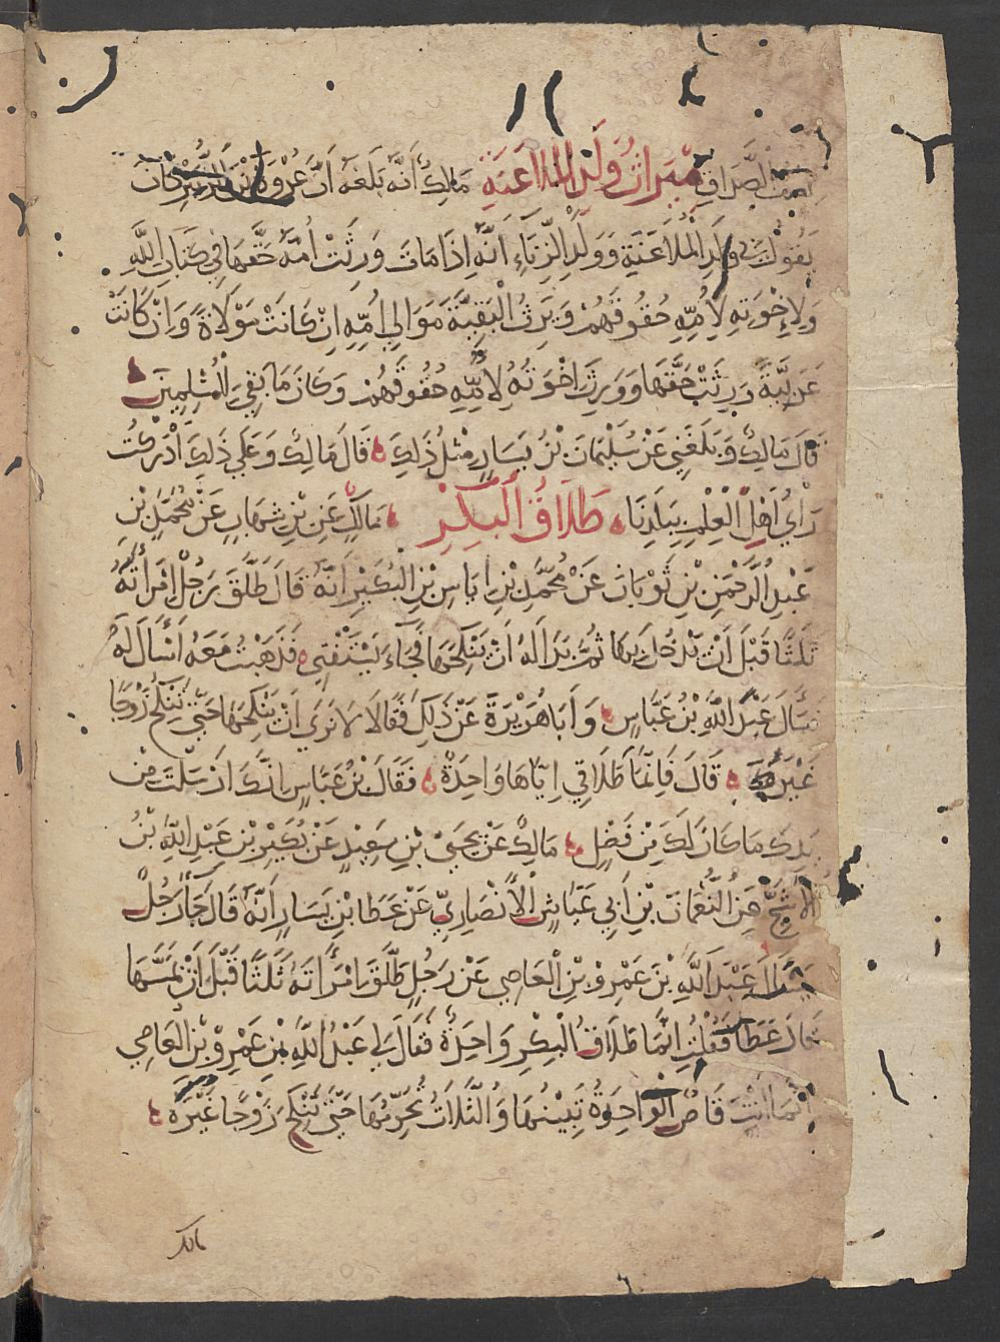 نصف الصداق ميراث ولد الملاعنة مالك أنه بلغه أن عروة بن الزبير كان
يقول في ولد الملاعنة وولد الزناء أنه إذا مات ورثت أمه حقها في كتاب الله
ولإخوته لأمه حقوقهم ويرث البقية موالي أمه إن كانت مولاة وإن كانت
عربية ورثت حقها وورث إخوته لأمه حقوقهم وكان ما بقي للمسلمين
قال مالك وبلغني عن سليمان بن يسار مثل ذلك قال مالك وعلى ذلك أدركت
رأي أهل العلم ببلدنا طلاق البكر مالك عن بن شهاب عن محمد بن
عبد الرحمن بن ثوبان عن محمد بن إياس بن البكير أنه قال طلق رجل امرأته
ثلثا قبل أن يدخل بها ثم بدا له أن ينكحها فجاء يستفتي فذهبت معه أسأل له
فسأل عبد الله بن عباس وأبا هريرة عن ذلك فقالا لا نرى أن ينكحها حتى تنكح زوجا
غيره قال فإنما طلاقي إياها واحدة فقال بن عباس إنك أرسلت من
يدك ما كان لك من فضل مالك عن يحيى بن سعيد عن بكير بن عبد الله بن
الأشج عن النعمان بن أبي عياش الأنصاري عن عطا بن يسار أنه قال جاء رجل
يسأل عبد الله بن عمرو بن العاصي عن رجل طلق امرأته ثلثا قبل أن يمسها
قال عطا فقلت إنما طلاق البكر واحدة فقال لي عبد الله بن عمرو بن العاصي
إنما أنت قاص الواحدة تبينها والثلاث تحرمها حتى تنكح زوجا غيره
مالك